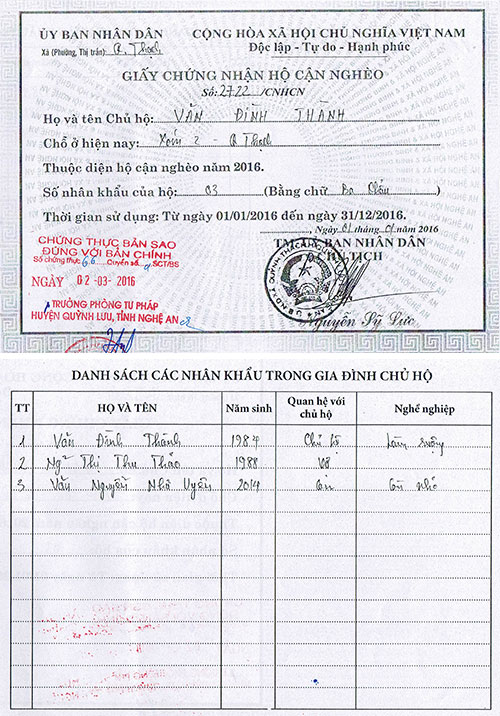 ỦY BAN NHÂN DÂN
Xã (Phường, Thị trấn) Q. Thạch
CỘNG HÒA XÃ HỘI CHỦ NGHĨA VIỆT NAM
Độc lập - Tự do - Hạnh phúc
GIẤY CHỨNG NHẬN HỘ CẬN NGHÈO
Số: 2722 /CNHCN
Họ và tên Chủ hộ: VĂN ĐÌNH THÀNH
Chỗ ở hiện nay: Xóm 2 - Q Thạch
Thuộc diện hộ cận nghèo năm 2016.
Số nhân khẩu của hộ: 03 (Bằng chữ Ba khẩu)
Thời gian sử dụng: Từ ngày 01/01/2016 đến ngày 31/12/2016.
Ngày 01 tháng 01 năm 2016
TM. ỦY BAN NHÂN DÂN
CHỦ TỊCH
Nguyễn Sỹ Lực
CHỨNG THỰC BẢN SAO
ĐÚNG VỚI BẢN CHÍNH
Số chứng thực 66 Quyển số SCT/BS
NGÀY 02-03-2016
TRƯỞNG PHÒNG TƯ PHÁP
HUYỆN QUỲNH LƯU, TỈNH NGHỆ AN
DANH SÁCH CÁC NHÂN KHẨU TRONG GIA ĐÌNH CHỦ HỘ
TT HỌ VÀ TÊN Năm sinh Quan hệ với chủ hộ Nghề nghiệp
1 Văn Đình Thành 1987 Chủ hộ Làm ruộng
2 Ng~ Thị Thu Thảo 1988 Vợ
3 Văn Nguyễn Nhã Uyên 2014 Con Còn nhỏ